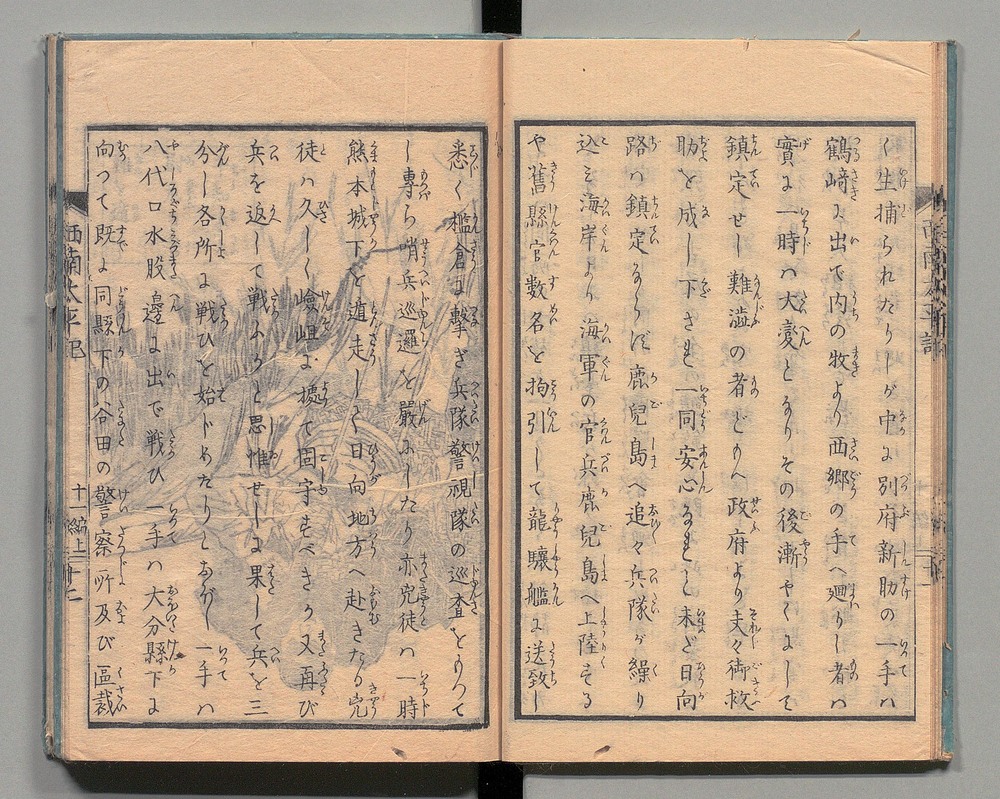 く生捕られたりしが中に別府新助の一手ハ
鶴崎に出で内の牧より西郷の手へ廻りし者ハ
實に一時ハ大変となりその後漸やくにして
鎮定せし難澁の者どもへ政府より夫々御救
助を成し下され一同安心なれと未だ日向
路ハ鎮定ならず鹿児島へ追々兵隊が繰り
込ミ海岸より海軍の官兵鹿児島へ上陸する
や舊縣官数名を拘引して龍驤艦に送致し
悉く檻倉に繋ぎ兵隊警視隊の巡査をもつて
し専ら哨兵巡邏を嚴にしたり亦兇徒ハ一時
熊本城下を遁走して日向地方へ赴きたる兇
徒ハ久しく嶮岨に據て固守すべきか又再び
兵を返して戦ふかと思惟せしに果して兵を三
分し各所に戦ひを始どめたりしが一手ハ
八代口水股邉に出で戦ひ一手ハ大分縣下に
向つて既に同縣下の谷田の警察所及び區裁
西南太平記
十一編上
十二